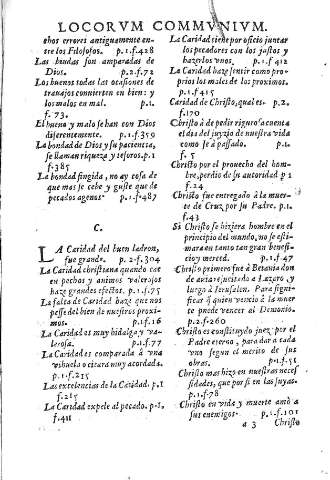 LOCORVM COMMVNIVM.
chos errores antiguamente en-
tre los Filosofos. p.1.f.428
Las biudas son amparadas de
Dios. p.2.f.72
Los buenos todas las ocasiones de
trabajos convierten en bien: y
los malos en mal. p.1.
f.73.
El bueno y malo se han con Dios
diferentemente. p.1.f.359
La bondad de Dios y su paciencia,
se llaman riqueza y tesoros. p.1
f.385
La bondad fingida, no ay cosa de
que mas se cebe y guste que de
pecados agenos p.1.f.487
C.
LA Caridad del buen ladron,
fue grande. p.2.f.304
La Caridad christiana quando cae
en pechos y animos valerosos
haze grandes efectos. p.1.f.75
La falta de Caridad haze que nos
pesse del bien de nuestros proxi-
mos. p.1.f.16
La Caridad es muy hidalga y va-
lerosa. p.1.f.77
La Caridad es comparada à una
vihuela o citara muy acordada.
p.1.f.215
Las excelencias de la Caridad. p.1
f.215
La Caridad expele al pecado. p.1.
f.411
La Caridad tiene por oficio juntar
los pecadores con los justos y
hazerlos unos. p.1.f.412
La Caridad haze sentir como pro-
prios los males de los proximos.
p.1.f.415
Caridad de Christo, qual es. p.2.
f.170
Christo à de pedir rigurosa cuenta
el dia del juyzio de nuestra vida
como se à passado. p.1.
f.5
Christo por el provecho del hom-
bre, perdio de su autoridad p 1
f.24
Christo fue entregado à la muer-
te de Cruz por su Padre. p.1.
f.43
Si Christo se hiziera hombre en el
principio del mundo, no se esti-
mara en tanto tan grande benefi-
cio y merced. p.1.f.47
Christo primero fue à Betania don
de avia resucitado a Lazaro, y
luego à Jerusalen. Para signifi-
car q̃ quien vencio à la muer
te puede vencer al Demonio.
p.2.f.260
Christo es constituydo juez por el
Padre eterno, para dar a cada
uno segun el merito de sus
obras. p.1.f.51
Christo mas hizo en nuestras neces
sidades, que por si en las suyas.
p.1.f.78
Christo en vida y muerte amò a
sus enemigos. p.1.f.101
a 3 Christo